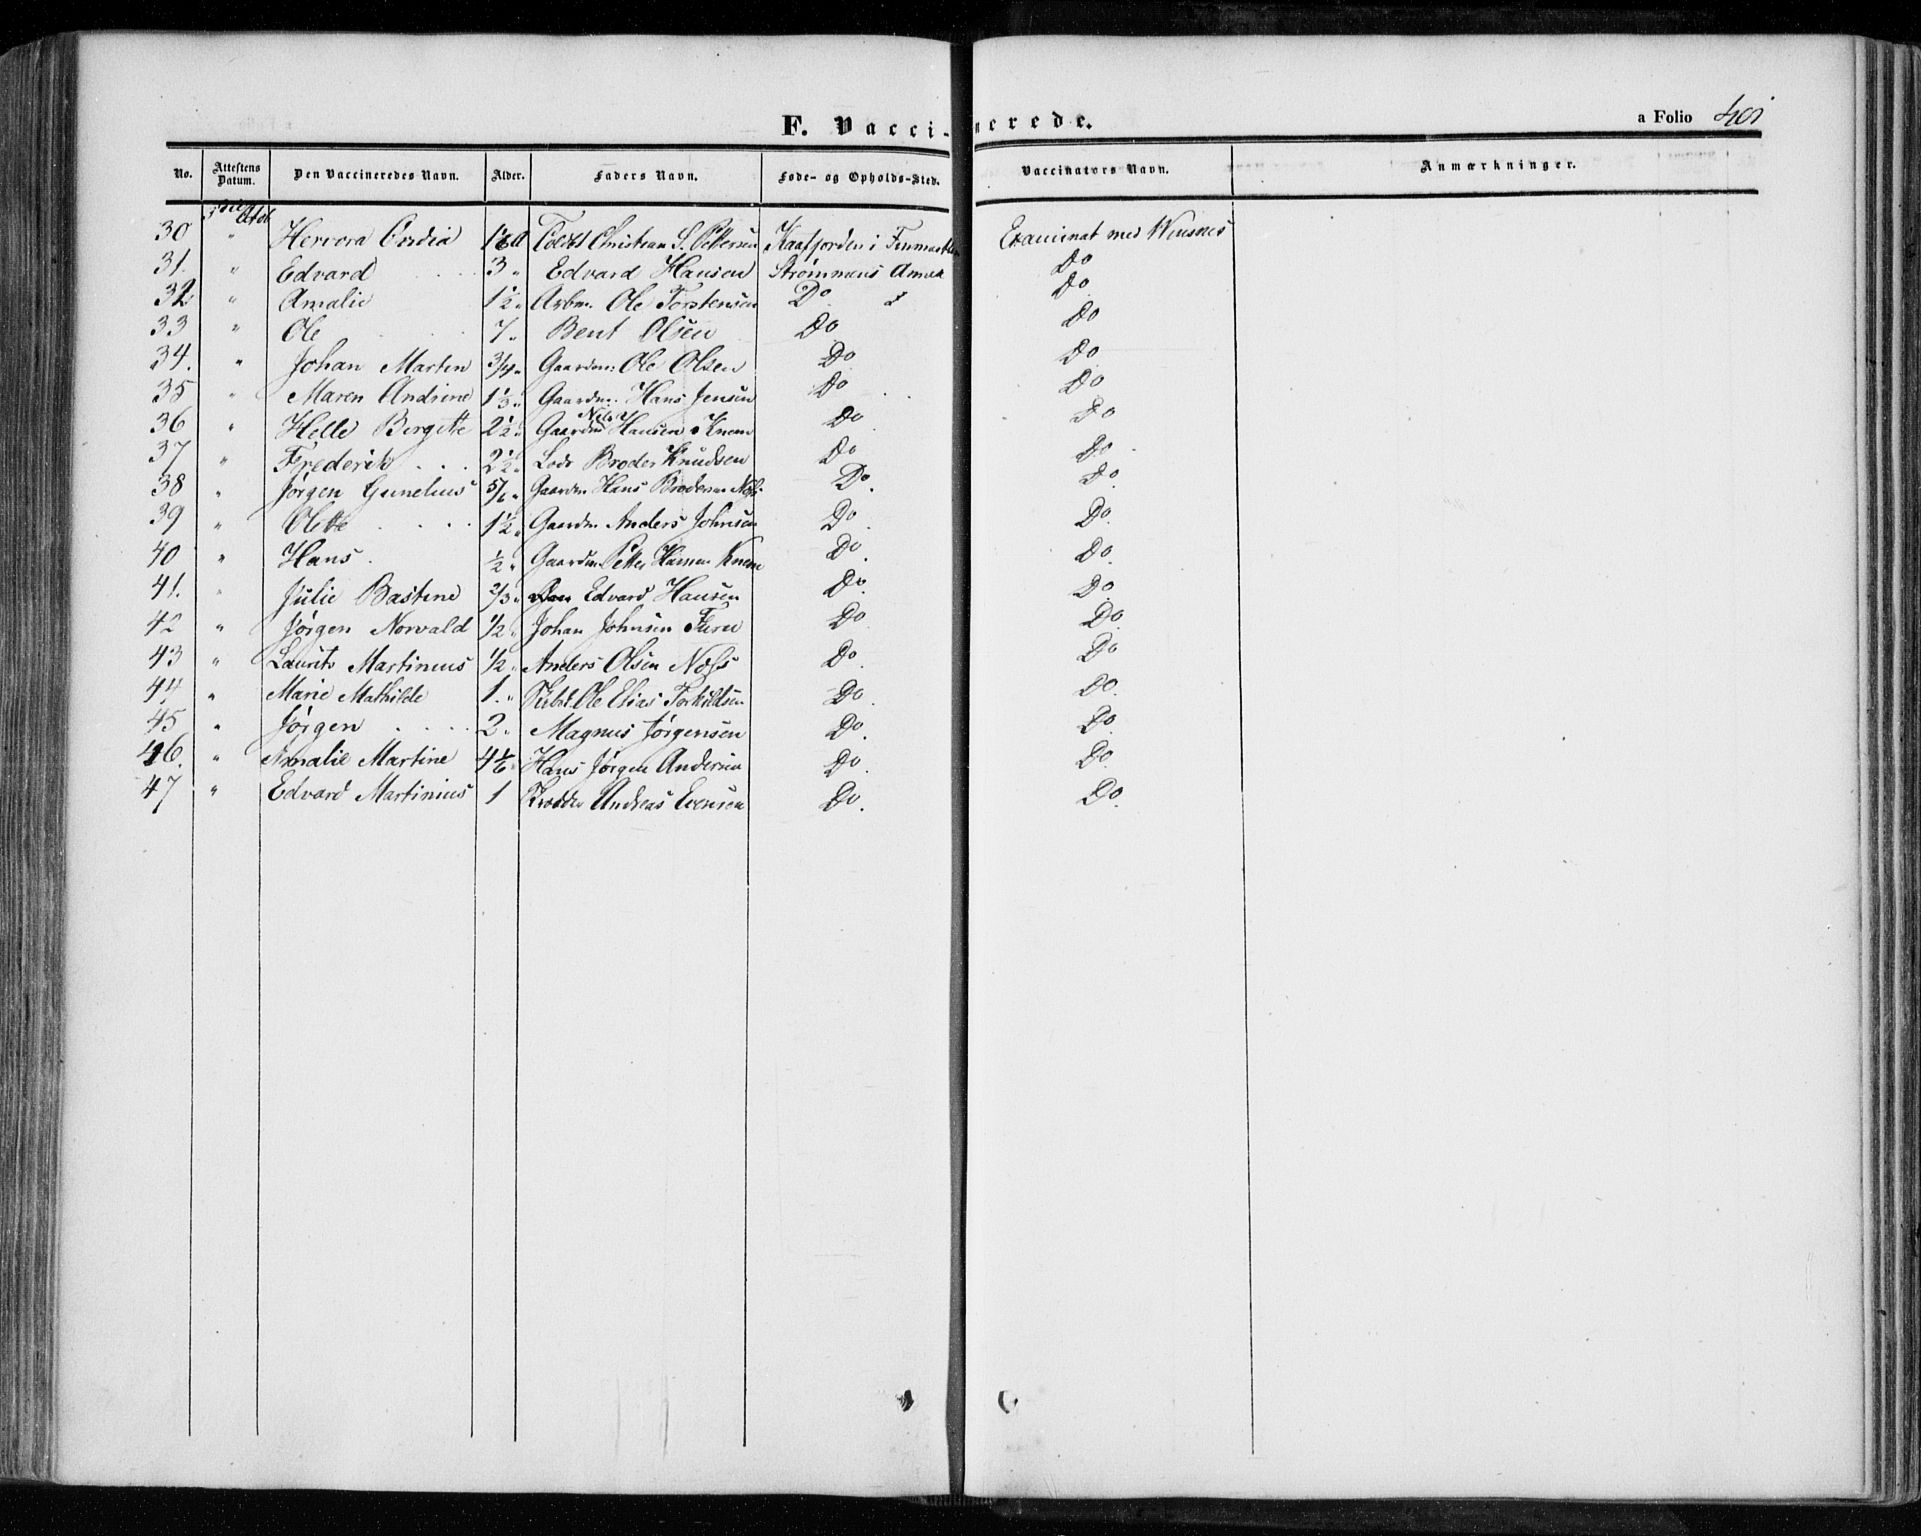 F. Vaccinerede.
a Folio 401
No. Attestens Datum. Den Vaccineredes Navn. Alder. Faders Navn. Føde- og Opholds-Sted. Vaccinators Navn. Anmærkninger.
30 " Hervora Ovidia Christian S. Pettersen Kaafjorden i Finmarken Examinat med
31. " Edvard 3 " Edvard Hansen Strømmens Annex Do
32 " Amalie 1½ " Arbm. Ole Torstensen Do Do
33 " Ole 7 " Bent Olsen Do Do
34. " Johan Martin 3/4 " Gaardm: Ole Olsen Do Do
35 " Maren Andrine 1⅓ " Gaardm. Hans Jensen Do Do
36 " Helle Birgitte 2½ " Gaardm Nils Hansen Knem Do Do
37 " Frederik 2½ " Lods Broder Knudsen Do Do
38 " Jørgen Gunelius 5/6 " Gaardm Hans Brodersen Næss Do. Do.
39 " Olette 1½ " Gaardm Anders Johnsen Do. Do.
40 " Hans ½ " Gaardm Petter Hansen Knem Do. Do.
41. " Julie Bastine 2/3 " Edvard Hansen Do. Do.
42 " Jørgen Norvald 1/2 " Johan Johnsen Furu Do. Do.
43 " Laurits Martinius 1/2 " Anders Olsen Næss Do. Do.
44. " Marie Mathilde 1. " Ole Elias Torkildsen Do. Do.
45 " Jørgen 2 " Magnus Jørgensen Do. Do.
46. " Amalie Martine 4⅙ " Hans Jørgen Andersen Do. Do.
47 " Edvard Martinius 1 Andreas Evensen Do. Do.